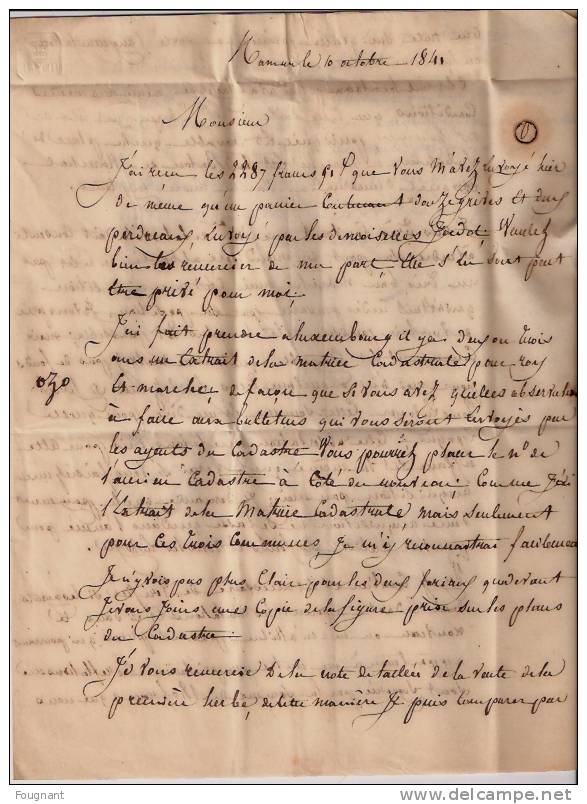 Namur le 10 octobre 1841
Monsieur
J'ai recu les 2287 francs 91 que vous m'avez Envoyé hier
de même qu'un panier Contenant douze grives Et deux
perdreaux, Envoyé par les demoiselles Veuillez
bien les remercier de ma part, Elle s'En sont peut
être privé pour moi,
J'ai fait prendre a luxembourg il y a deux ou trois
ans un Extrait de la matrice Cadastrale pour roy
Et marche de façon que si vous avez quelles observations
à faire aux bulletins qui vous seront Envoyés par
les agents du Cadastre vous pourrez placer le n° de
l'ancien Cadastre à Coté du nouveau Comme J'ai
l'Extrait de la Matrice Cadastrale mais seulement
pour Ces trois Communes, Je m'y reconnaitrai facilement
Je n'y vois pas plus Clair pour les deux qu'devant
Je vous Joins une Copie de la figure prise sur les plans
du Cadastre.
Je vous remercie De la note detaillée de la vente de la
première herbe, de cette manière Je puis Comparer par
Fougnant
delcampe.net